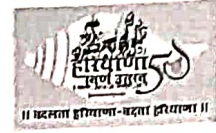 हरियाणा
स्वर्ण उत्सव
50
॥ बदलता हरियाणा-बढ़ता हरियाणा ॥